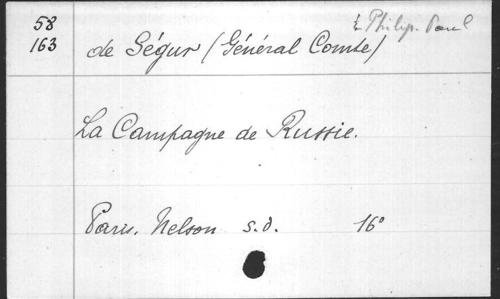 58
163
de Ségur (Général Comte) Philip. Paul
La Campagne de Russie.
Paris. Nelson s.d. 16°